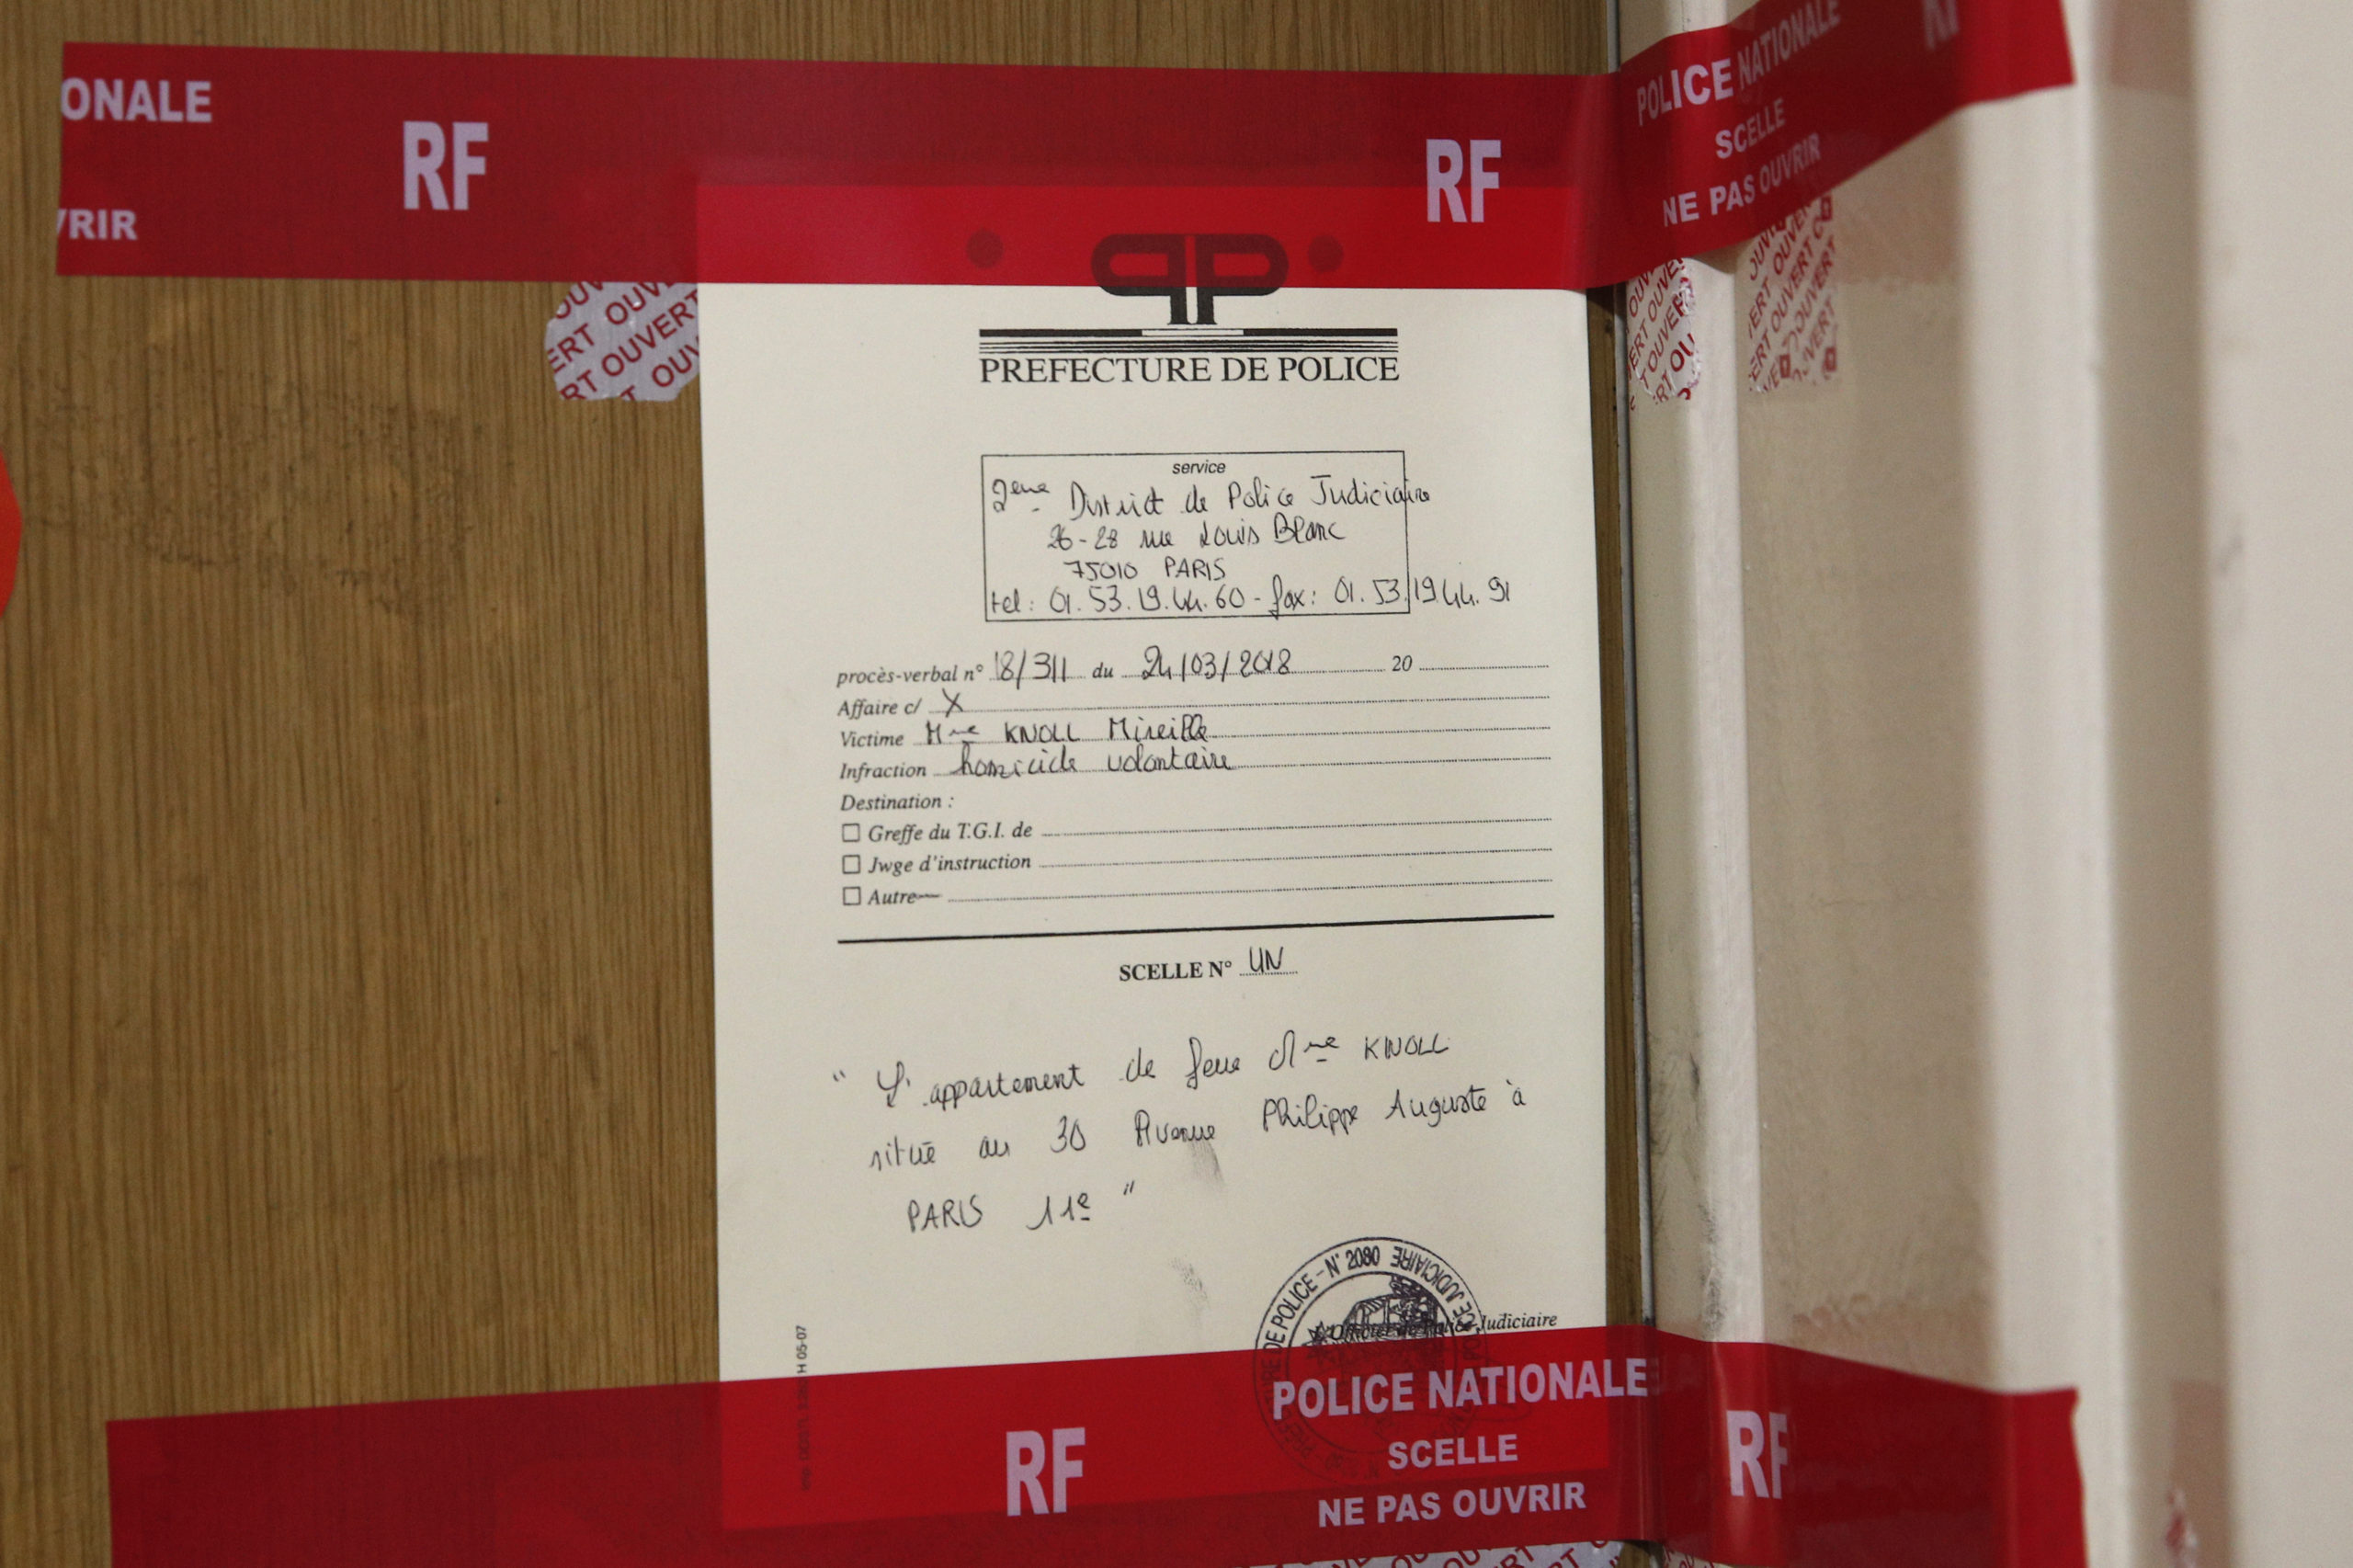 ONALE
VRIR
RF
RF
POLICE NATIONALE
SCELLE
NE PAS OUVRIR
OUVERT OUVERT
PP
PREFECTURE DE POLICE
service
2eme District de Police Judiciaire
26-28 rue Louis Blanc
75010 PARIS
tel: 01.53.19.44.60 - fax: 01.53.19.44.91
procès-verbal n° 18/311 du 24/03/2018 20
Affaire c/ X
Victime Mme KNOLL Mireille
Infraction homicide volontaire
Destination :
Greffe du T.G.I. de
Jwge d'instruction
Autre
SCELLE N° UN
" L'appartement de feue Mme KNOLL
situé au 30 Avenue Philippe Auguste à
PARIS 11e "
DE POLICE - N° 2080
JUDICIAIRE
L'Officier de Police Judiciaire
H 05-07
POLICE NATIONALE
RF
SCELLE
NE PAS OUVRIR
RF